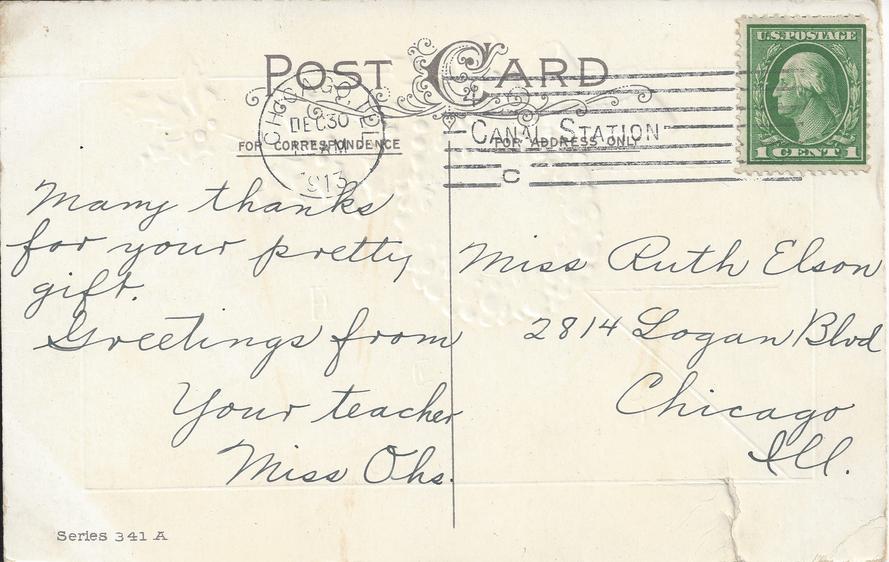 POST CARD
CHICAGO, ILL.
DEC 30
AM
1913
CANAL STATION
C
U.S. POSTAGE
1 CENT 1
FOR CORRESPONDENCE
FOR ADDRESS ONLY
Many thanks
for your pretty
gift.
Greetings from
Your teacher
Miss Ohs.
Miss Ruth Elson
2814 Logan Blvd
Chicago
Ill.
Series 341 A